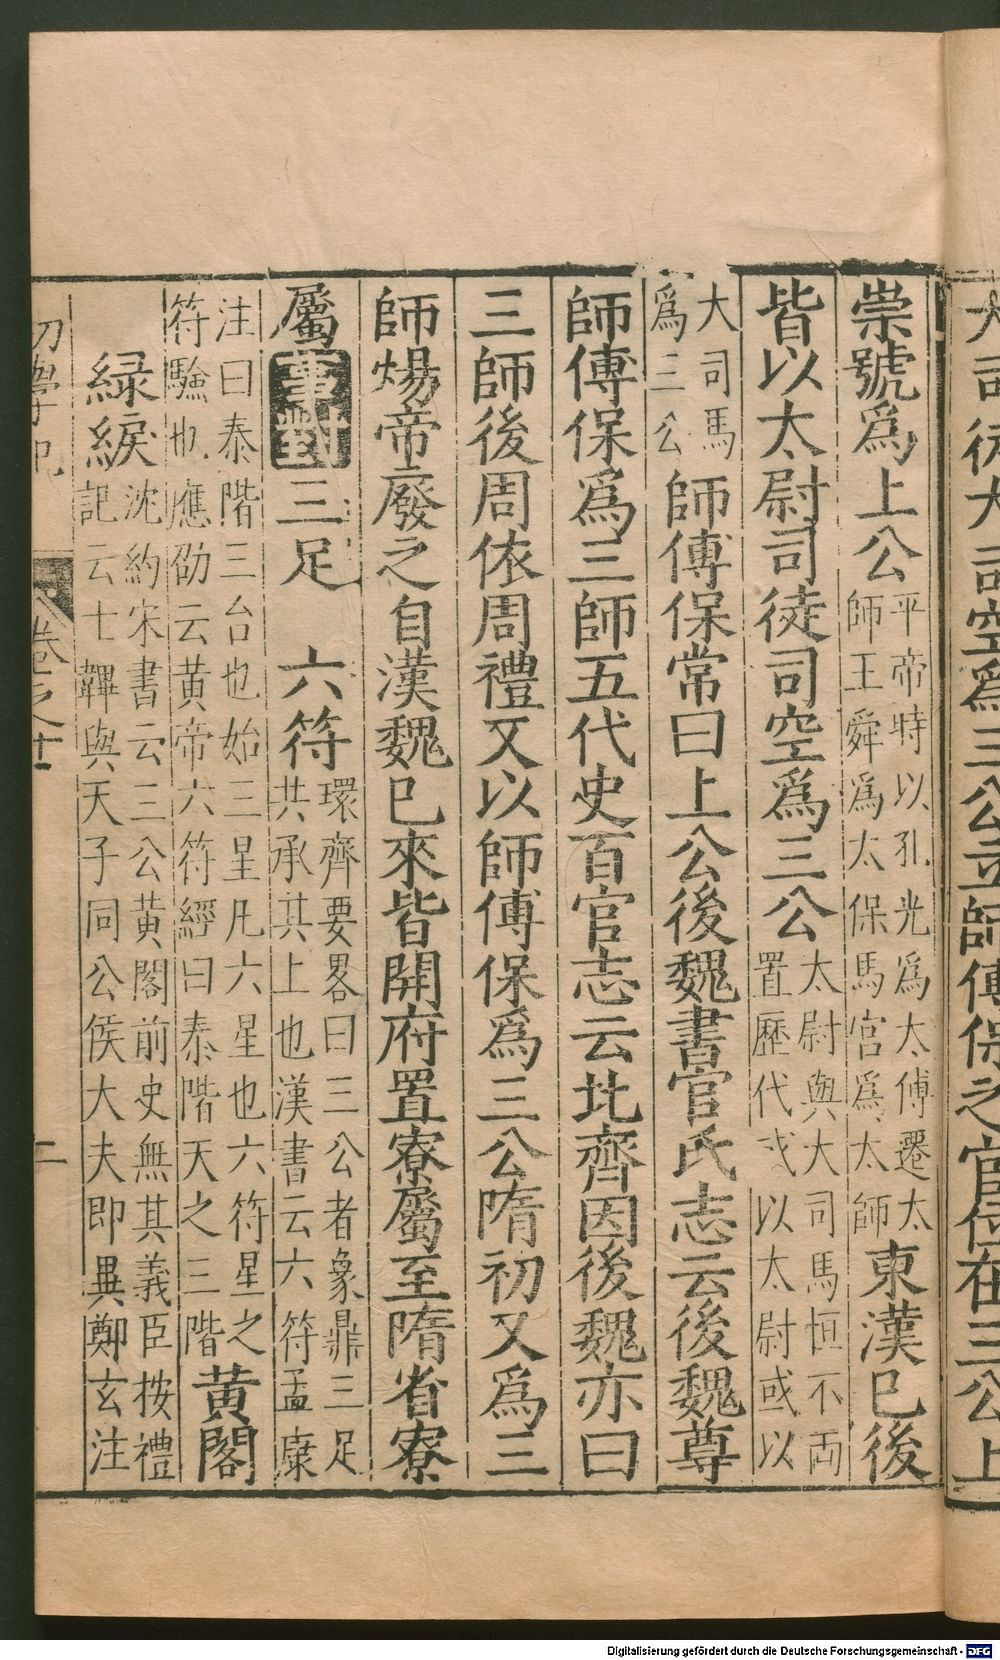 大司徒大司空爲三公立師傅保之官位在三公上
崇號爲上公平帝時以孔光爲太傅遷太師王舜爲太保馬宮爲太師東漢已後
皆以太尉司徒司空爲三公太尉與大司馬恒不両置歷代或以太尉或以
大司馬爲三公師傅保常曰上公後魏書官氏志云後魏尊
師傅保爲三師五代史百官志云北齊因後魏亦曰
三師後周依周禮又以師傅保爲三公隋初又爲三
師煬帝廢之自漢魏已來皆開府置寮屬至隋省寮
屬事對三足 六符環齊要畧曰三公者象鼎三足共承其上也漢書云六符孟康
注曰泰階三台也始三星凡六星也六符星之符驗也應劭云黄帝六符經曰泰階天之三階黄閣
沈約宋書云三公黄閣前史無其義臣按禮記云士韠與天子同公侯大夫即異鄭玄注
緑綟
初學記 卷之十一 二
Digitalisierung gefördert durch die Deutsche Forschungsgemeinschaft - DFG